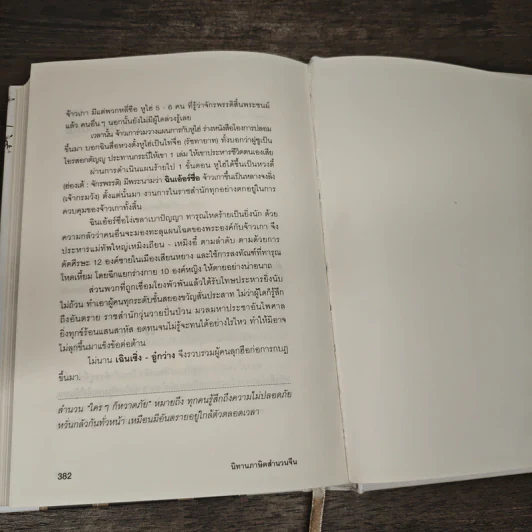 จ้าวเกา มีแต่พวกหลี่ซือ หูไฮ่ 5 - 6 คน ที่รู้ว่าจักรพรรดิสิ้นพระชนม์
แล้ว คนอื่นๆ นอกนั้นยังไม่มีผู้ใดล่วงรู้เลย
เวลานั้น จ้าวเการ่วมวางแผนการกับหูไฮ่ ร่างหนังสือโองการปลอม
ขึ้นมา บอกฉินสื่อหวงตั้งหูไฮ่เป็นไท่จื่อ (รัชทายาท) ทั้งบอกว่าฝูซูเป็น
โอรสอกตัญญู ประทานกระบี่ให้เขา 1 เล่ม ให้เขาประหารชีวิตตนเองเสีย
ผ่านการดำเนินแผนร้ายไป 1 ขั้นตอน หูไฮ่ได้ขึ้นเป็นหวงตี้
(ฮ่องเต้ : จักรพรรดิ) มีพระนามว่า ฉินเอ้อร์ซื่อ จ้าวเกาขึ้นเป็นหลางจงลิ่ง
(เจ้ากรมวัง) ตั้งแต่นั้นมา งานการในราชสำนักทุกอย่างตกอยู่ในการ
ควบคุมของจ้าวเกาทั้งสิ้น
ฉินเอ้อร์ซื่อโง่เขลาเบาปัญญา ทารุณโหดร้ายเป็นยิ่งนัก ด้วย
ความกลัวว่าคนอื่นจะมองทะลุแผนโฉดของพระองค์กับจ้าวเกา จึง
ประหารแม่ทัพใหญ่เหมิงเถียน - เหมิงอี้ ตามลำดับ ตามด้วยการ
ตัดศีรษะ 12 องค์ชายในเมืองเสียนหยาง และใช้การลงทัณฑ์ที่ทารุณ
โหดเหี้ยม โดยฉีกแยกร่างกาย 10 องค์หญิง ให้ตายอย่างน่าอนาถ
ส่วนพวกที่ถูกเชื่อมโยงพัวพันแล้วได้รับโทษประหารยิ่งนับ
ไม่ถ้วน ทำเอาผู้คนทุกระดับชั้นสยองขวัญสั่นประสาท ไม่ว่าผู้ใดก็รู้สึก
ถึงอันตราย ราชสำนักวุ่นวายปั่นป่วน มวลมหาประชาอันไพศาล
ยิ่งทุกข์ร้อนแสนสาหัส อดทนจนไม่รู้จะทนได้อย่างไรไหว ทำให้มิอาจ
ไม่ลุกขึ้นมาแข็งข้อต่อต้าน
ไม่นาน เฉินเซิ่ง - อู๋กว่าง จึงรวบรวมผู้คนลุกฮือก่อการกบฏ
ขึ้นมา
สำนวน "ใครๆ ก็หวาดภัย" หมายถึง ทุกคนรู้สึกถึงความไม่ปลอดภัย
หวั่นกลัวกันทั่วหน้า เหมือนมีอันตรายอยู่ใกล้ตัวตลอดเวลา
382
นิทานภาษิตสำนวนจีน